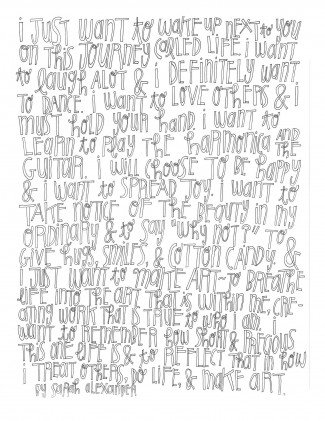 i JUST WANT to WAKE UP NEXT to YOU
ON tHiS JOURNEY CALLED LiFE i WANT
to LAUGH ALOT & i DEFiNitELY WANT
TO DANCE. i WANT to LOVE OTHERS & i
MUST HOLD YOUR HAND i WANT to
LEARN to PLAY THE HARMONiCA AND THE
GUiTAR. i WiLL CHOOSE TO BE HAPPY
& i WANT to SPREAD JOY. i WANT to
TAKE NOTiCE OF THE BEAUTY iN MY
ORDiNARY & to SAY "WHY NOT?" TO
GiVE HUGS, SMiLES, & COTTON CANDY, &
i JUST WANT to MAKE ART~ to BREATHE
LiFE iNTO THE ART THAT iS WiTHiN ME, CRE-
ATiNG WORK THAT iS TRUE to WHO i AM. i
WANT to REMEMBER HOW SHORT & PRECiOUS
THiS ONE LiFE iS & to REFLECT THAT iN HOW
i TREAT OTHERS, DO LiFE, & MAKE ART.
BY SARAH ALEXANDER